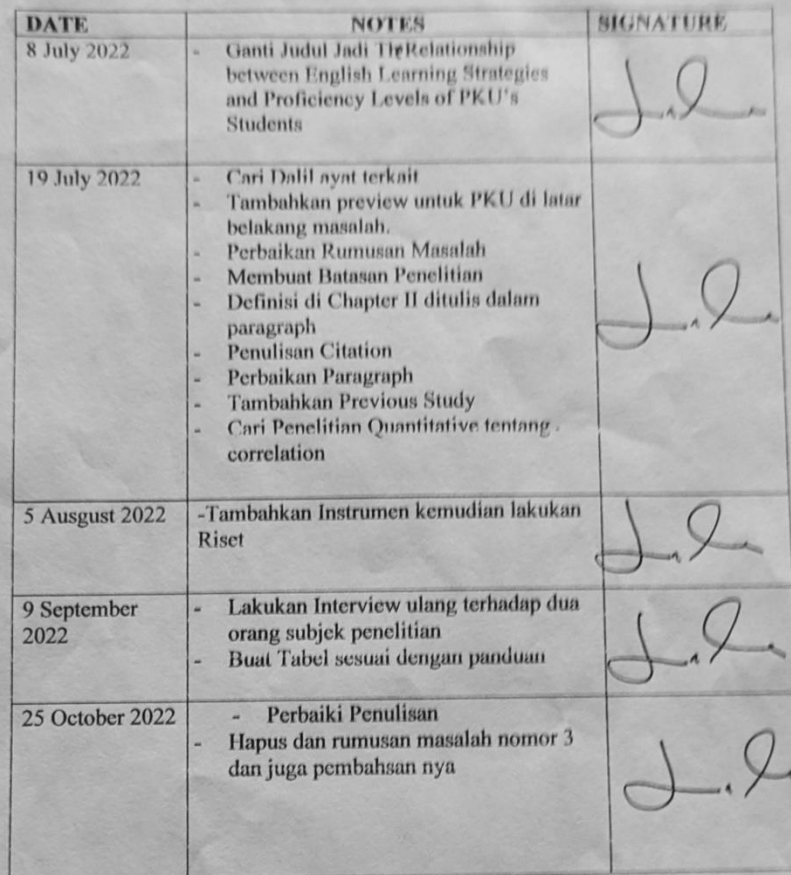 DATE NOTES SIGNATURE
8 July 2022 - Ganti Judul Jadi The Relationship
between English Learning Strategies
and Proficiency Levels of PKU's
Students
19 July 2022 - Cari Dalil ayat terkait
- Tambahkan preview untuk PKU di latar
belakang masalah.
- Perbaikan Rumusan Masalah
- Membuat Batasan Penelitian
- Definisi di Chapter II ditulis dalam
paragraph
- Penulisan Citation
- Perbaikan Paragraph
- Tambahkan Previous Study
- Cari Penelitian Quantitative tentang .
correlation
5 Ausgust 2022 -Tambahkan Instrumen kemudian lakukan
Riset
9 September - Lakukan Interview ulang terhadap dua
2022 orang subjek penelitian
- Buat Tabel sesuai dengan panduan
25 October 2022 - Perbaiki Penulisan
- Hapus dan rumusan masalah nomor 3
dan juga pembahsan nya